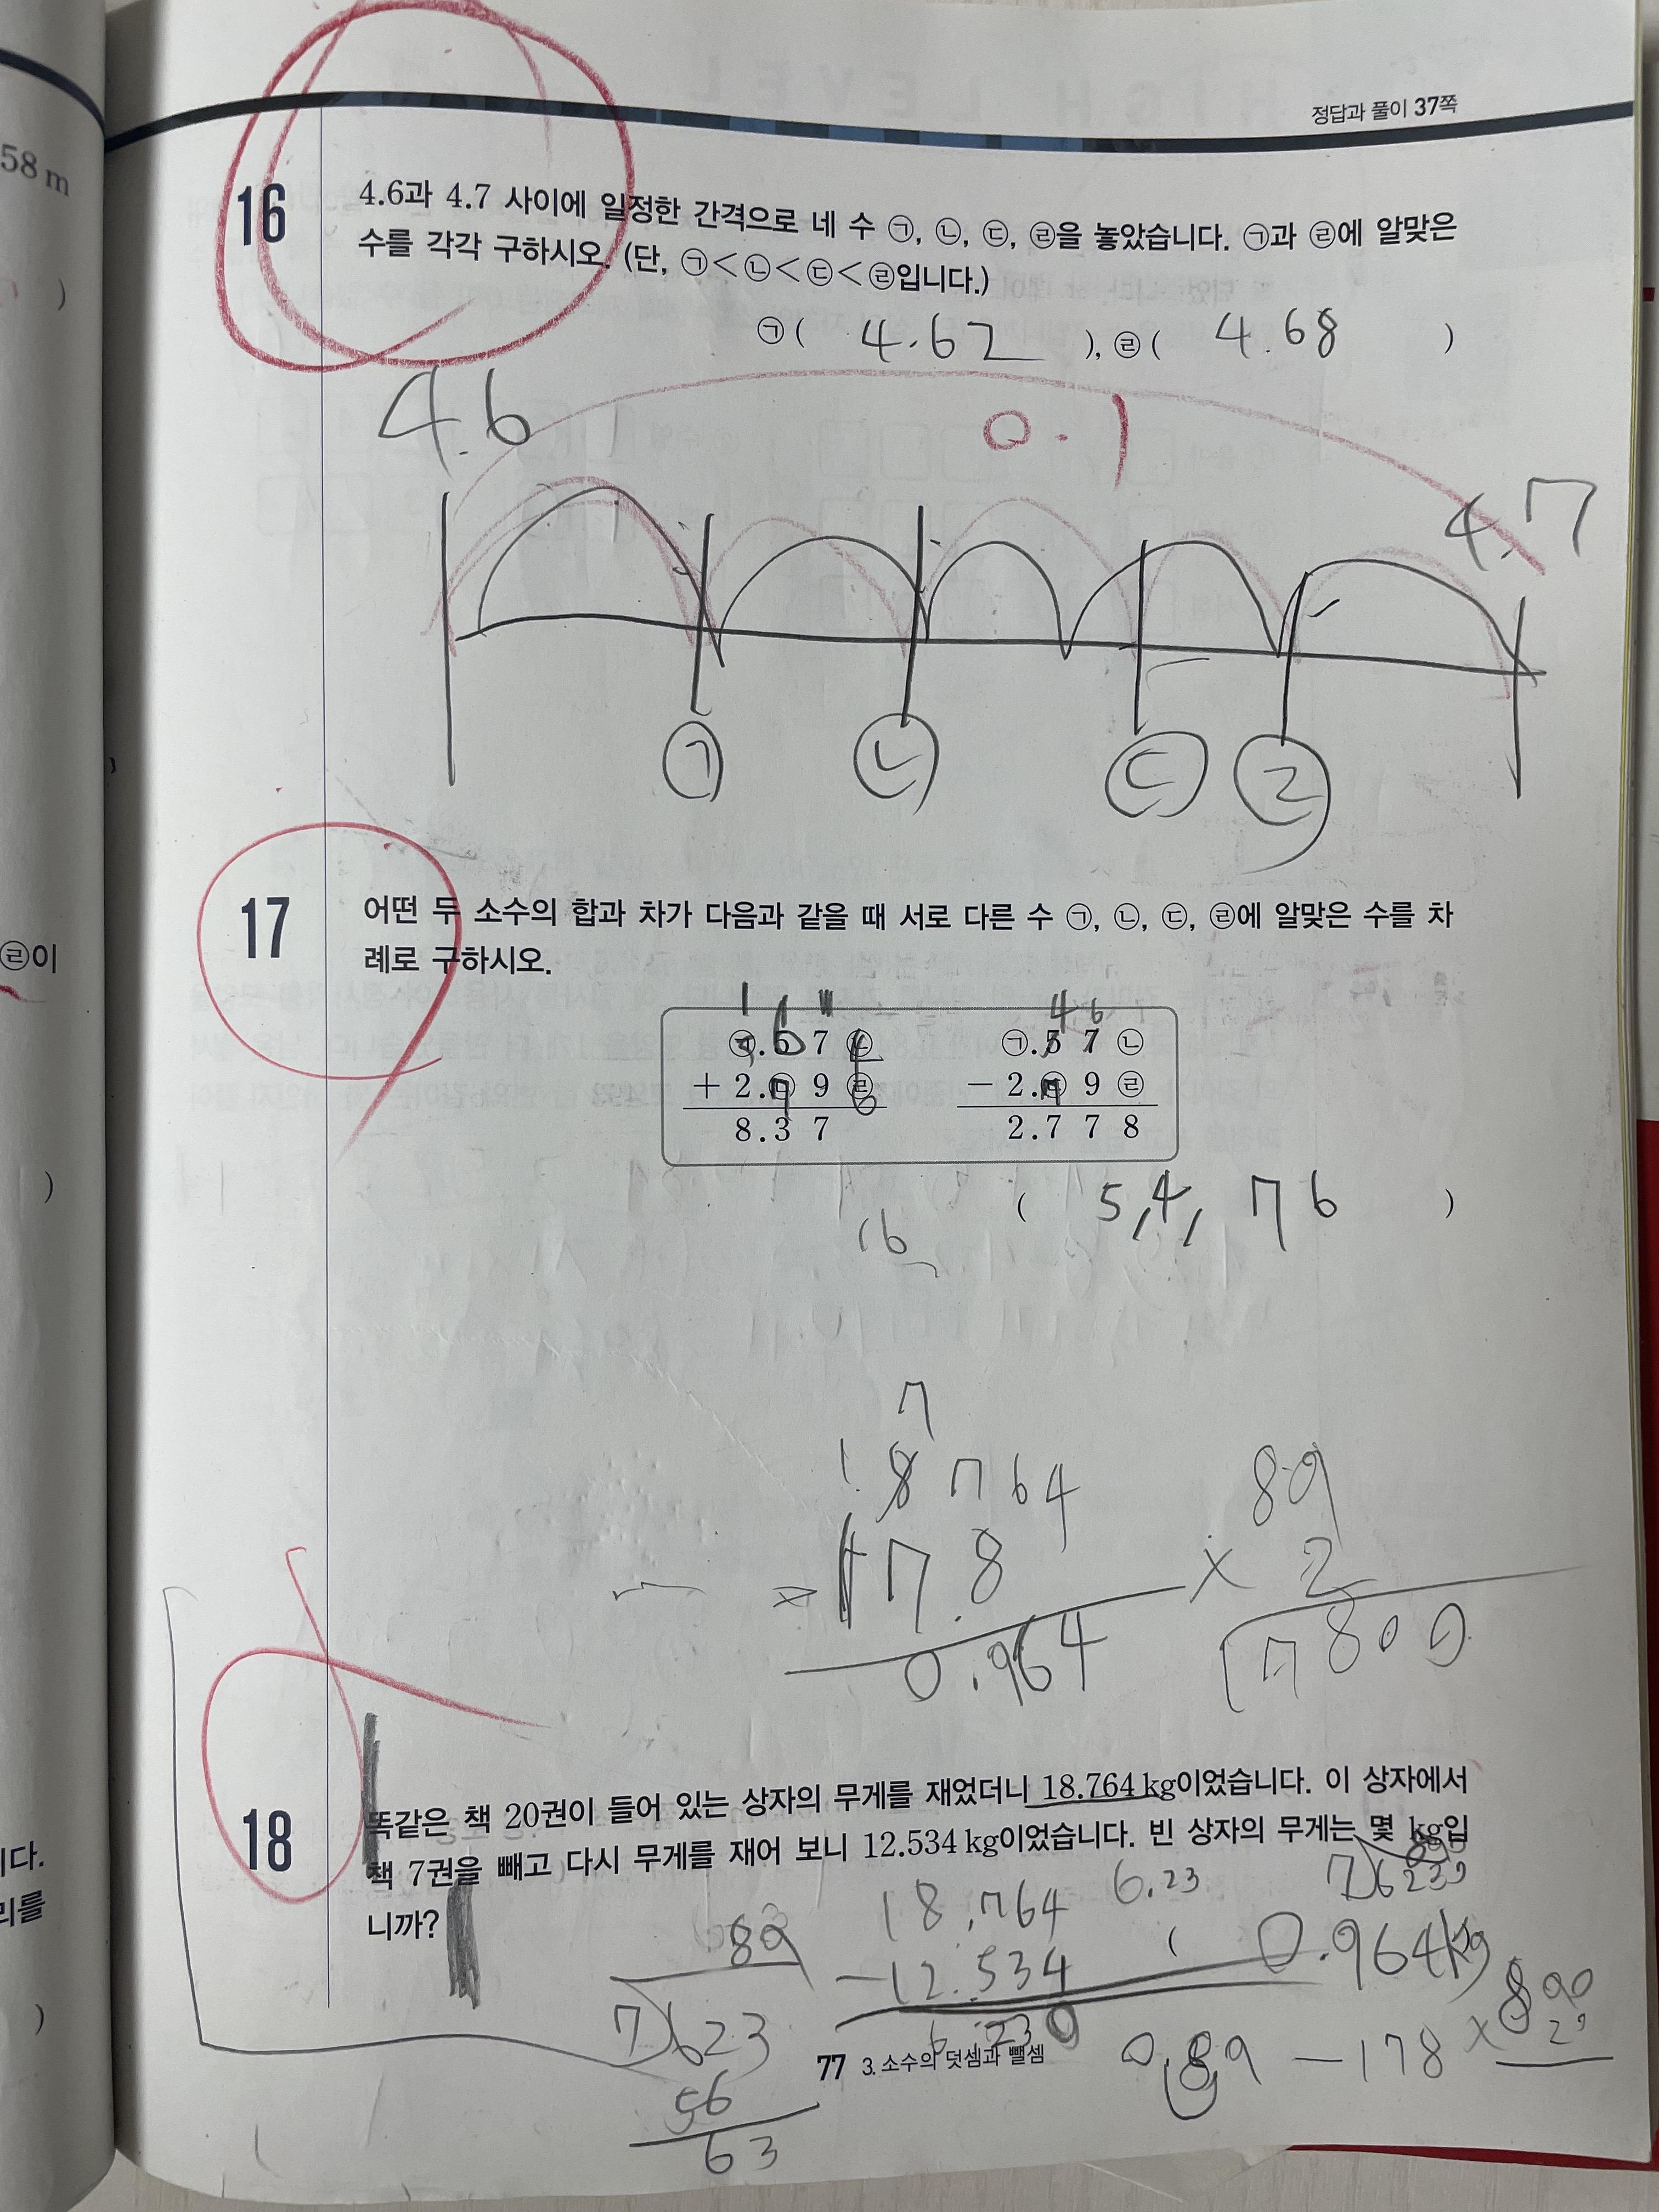 정답과 풀이 37쪽
58 m
16
4.6과 4.7 사이에 일정한 간격으로 네 수 ㉠, ㉡, ㉢, ㉣을 놓았습니다. ㉠과 ㉣에 알맞은
수를 각각 구하시오. (단, ㉠<㉡<㉢<㉣입니다.)
㉠( 4.62 ), ㉣( 4.68 )
4.6
0.1
4.7
㉠ ㉡ ㉢ ㉣
㉣이
17
어떤 두 소수의 합과 차가 다음과 같을 때 서로 다른 수 ㉠, ㉡, ㉢, ㉣에 알맞은 수를 차
례로 구하시오.
4 6
㉠.5 7 ㉡
㉠.5 7 ㉡
+ 2.㉢ 9 ㉣
− 2.㉢ 9 ㉣
8.3 7
2.7 7 8
( 5,4, 7 6 )
16
7
18 764
89
17.8
× 2
0.964
17800
18
똑같은 책 20권이 들어 있는 상자의 무게를 재었더니 18.764 kg이었습니다. 이 상자에서
책 7권을 빼고 다시 무게를 재어 보니 12.534 kg이었습니다. 빈 상자의 무게는 몇 kg입
니까?
6.23
18.764
( 0.964kg
89
−12.534
7)623
6.230
56
63
0.89 − 178
× 890
20
다.
리를
77 3. 소수의 덧셈과 뺄셈